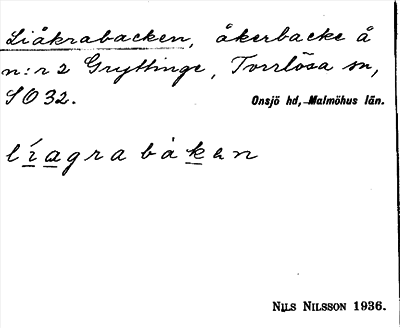 Liåkrabacken, åkerbacke å
n:r 2 Gryttinge, Torrlösa sn,
SO 32.
Onsjö hd, Malmöhus län.
líagra bàkan
NILS NILSSON 1936.